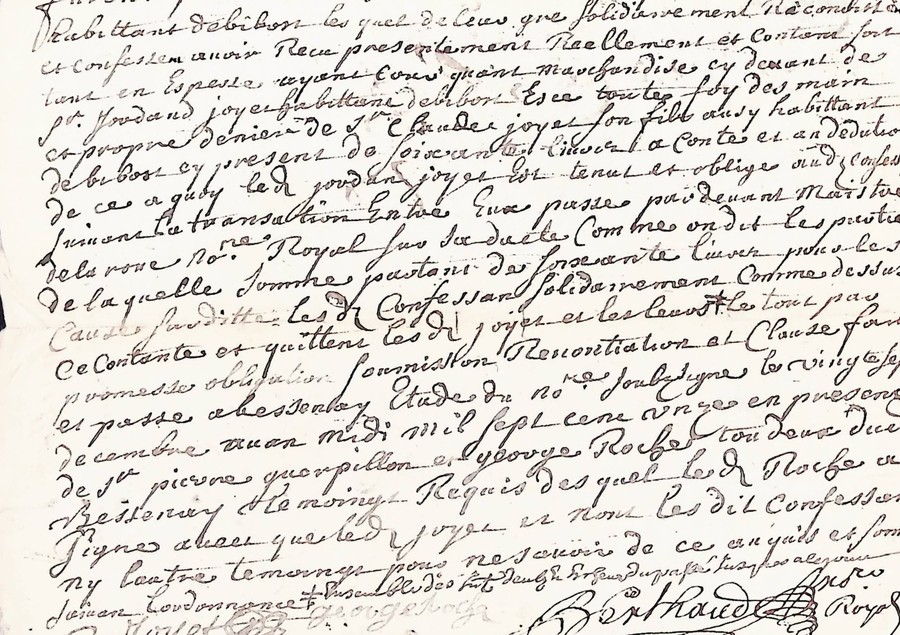 habittant debibost les quel de leur gre solidairement
et confessem avoir Receu presentement Reellement et Contant
tant en Espesse ayant Cour quant marchandise cy devant de
sr. Jordand joyet habittant debibost Esce toutte foy des main
et propre denier de sr Claude joyet son fils aussy habittant
debibost cy present de soixante livres a Conte et en dedution
de ce a quoy led jordan joyet Est tenut et oblige aud Confess
suivant la transation Entre Eux passe pardevant Maistre
delaroue no.re Royal sur sa datte Comme on dit les partie
de laquelle somme partant de soixante livres pour les
Cause susditte les d Confessan solidairement Comme dessus
ce Contante et quittent les d joyet et les leurs ‡ le tout par
promesse obligation soumission Renontiation et Clause
et passe abessenay Etude du no.re soubsigne le vingt sep
decembre avan midi mil sept cent unze en presen
de sr pierre guerpillon et george Roche tou deux du
Bessenay temoingt Requis desquel led Roche a
signe avect que led joyet et nont les dit Confessan
ny lautre temoingt pour ne savoir de ce anquis et som
suivan lordonnance ‡
joyet george Roche
Berthaud Royal